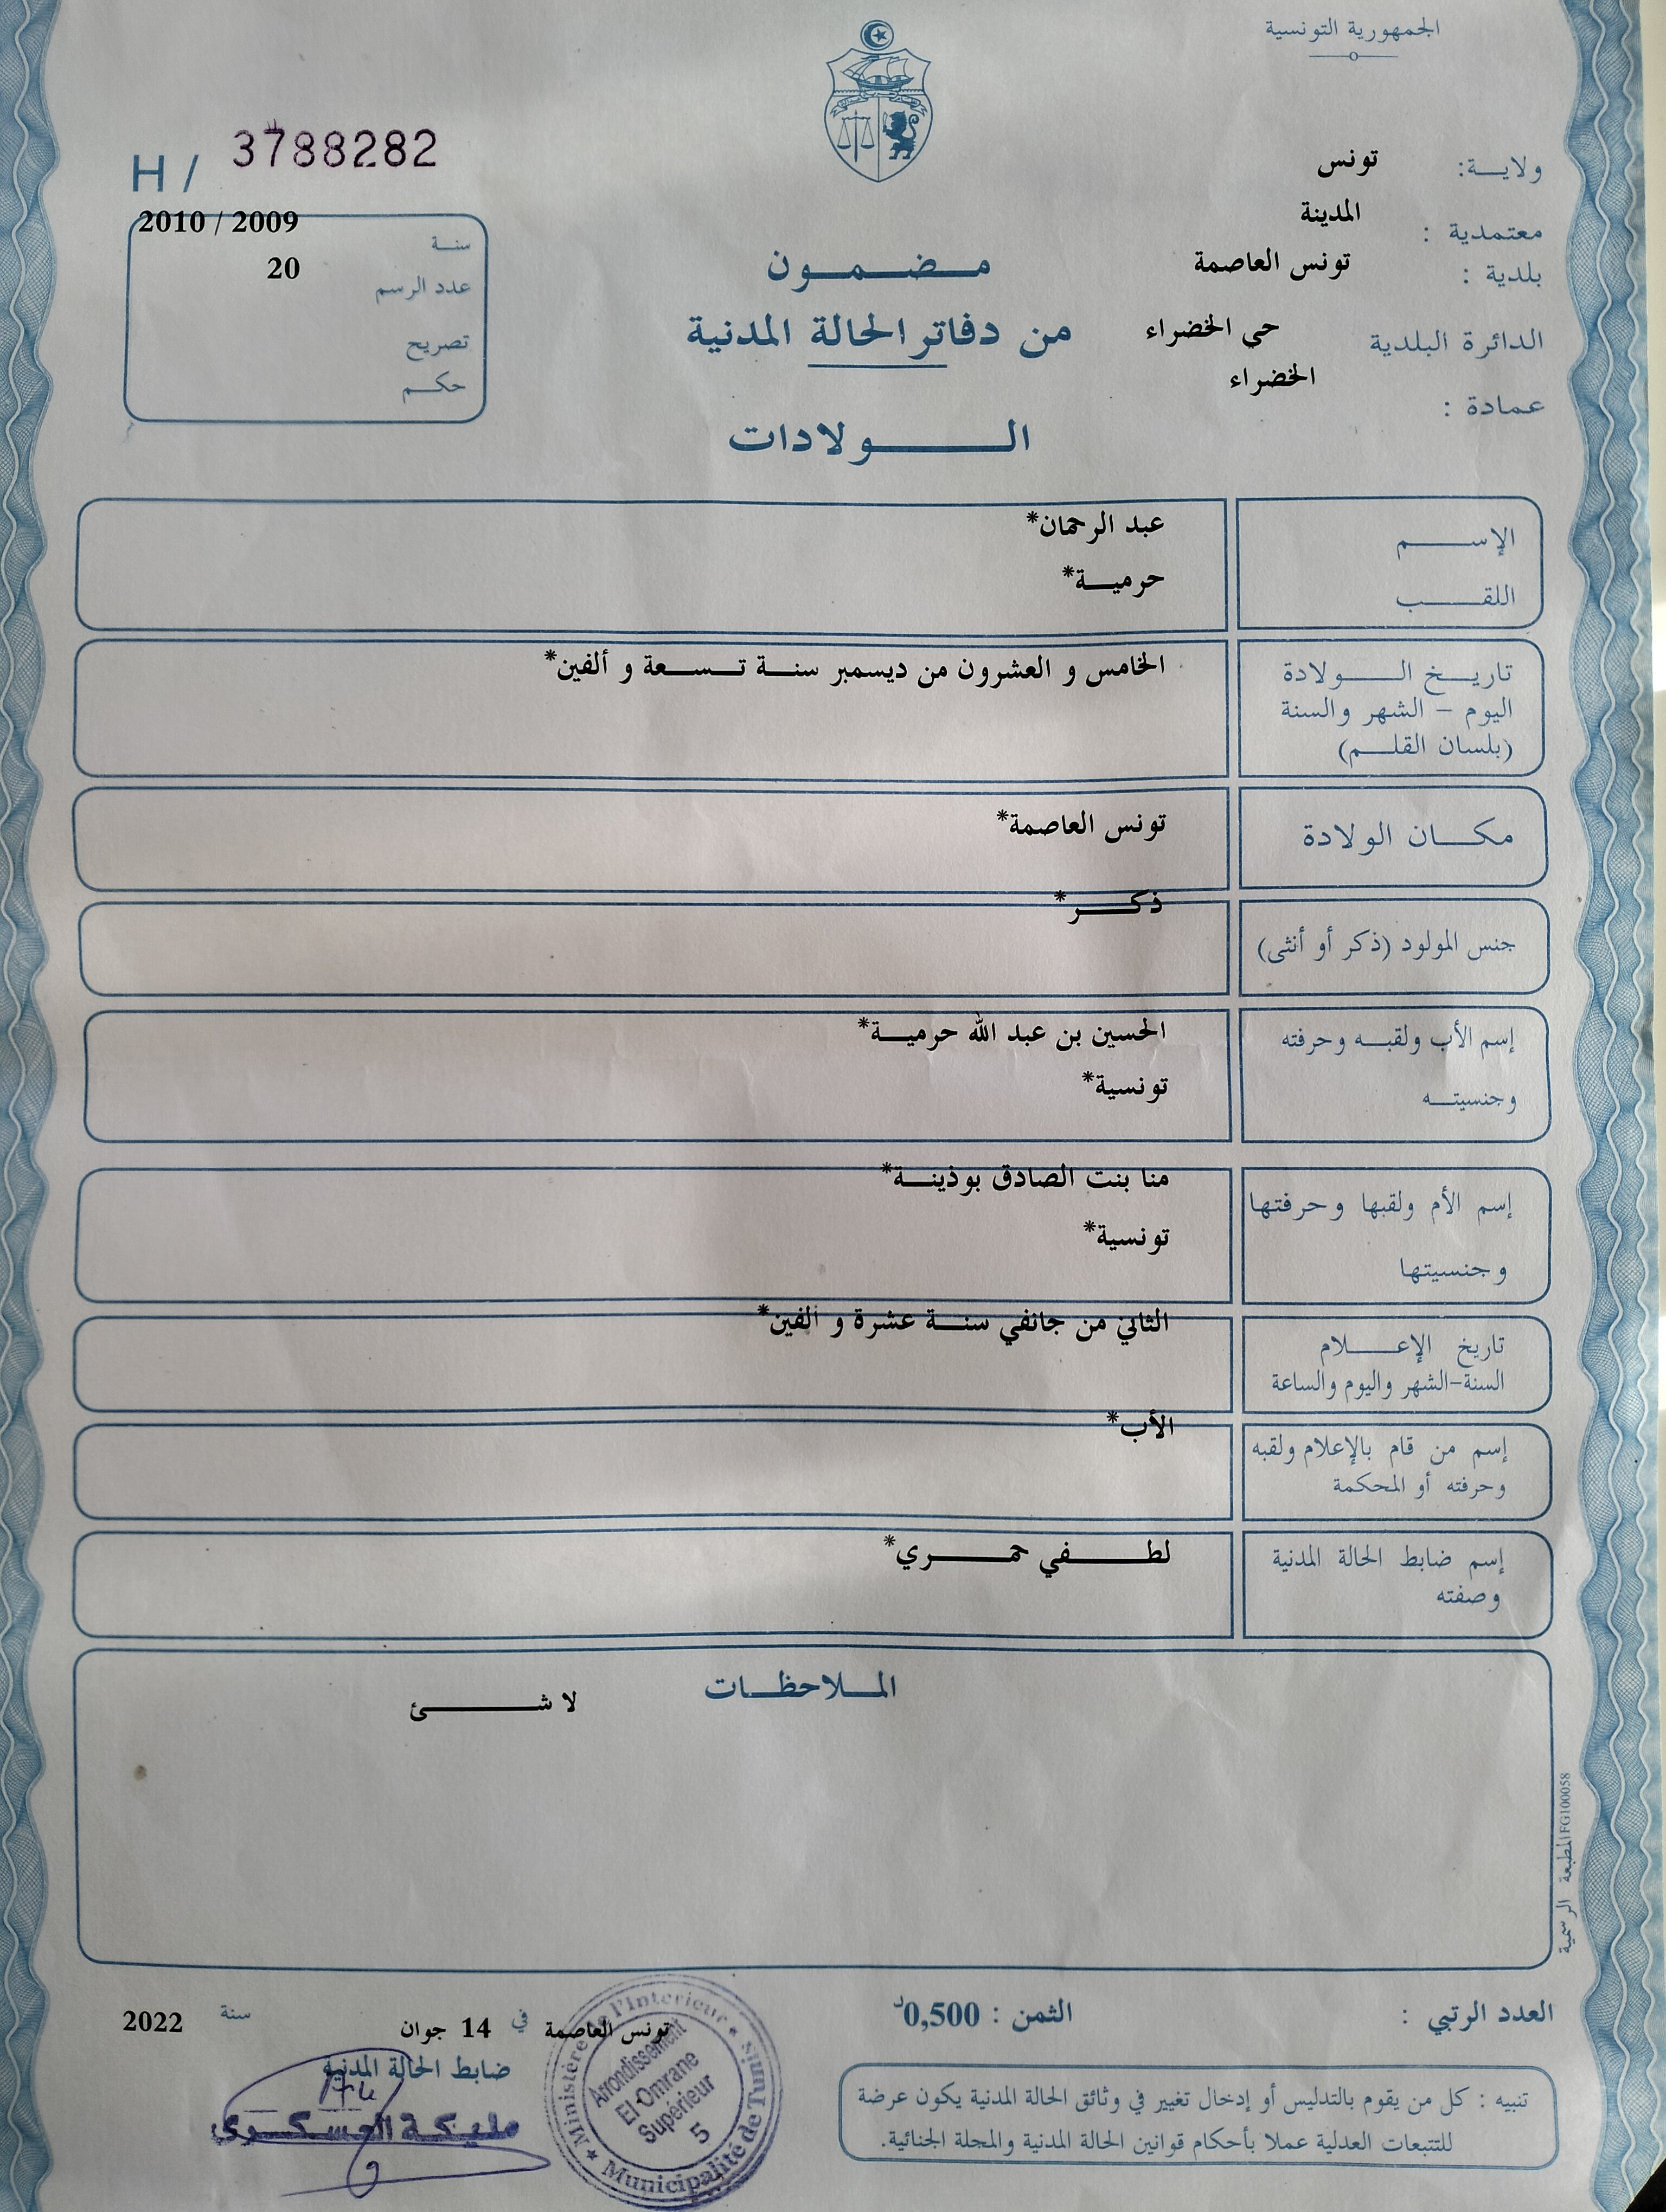 الجمهورية التونسية
ولايـــة: تونس
معتمدية : المدينة
بلدية : تونس العاصمة
الدائرة البلدية حي الخضراء
عمادة : الخضراء
H / 3788282
سنة 2010 / 2009
عدد الرسم 20
تصريح
حكم
مـضـمـون
من دفاتر الحالة المدنية
الـــولادات
الإســـم عبد الرحمان*
اللقـــب حرميـــة*
تاريـــخ الـــولادة الخامس و العشرون من ديسمبر سنـــة تـــسعة و ألفين*
اليوم – الشهر والسنة
(بلسان القلـــم)
مكـــان الولادة تونس العاصمة*
جنس المولود (ذكر أو أنثى) ذكـــر*
إسم الأب ولقبـــه وحرفته الحسين بن عبد الله حرميـــة*
وجنسيتـــه تونسية*
إسم الأم ولقبها وحرفتها منا بنت الصادق بوذينـــة*
وجنسيتها تونسية*
تاريخ الإعـــلام الثاني من جانفي سنـــة عشرة و ألفين*
السنة-الشهر واليوم والساعة
إسم من قام بالإعلام ولقبه الأب*
وحرفته أو المحكمة
إسم ضابط الحالة المدنية لطـــفي حمـــري*
وصفته
المـــلاحظـــات
لا شـــئ
المطبعة الرسمية FG100058
العدد الرتبي :
الثمن : 0,500د
تونس العاصمة في 14 جوان سنة 2022
ضابط الحالة المدنية
مليكة العسكري
Ministère de l'Interieur ★ Municipalité de Tunis ★
Arrondissement
El Omrane
Supérieur
5
تنبيه : كل من يقوم بالتدليس أو إدخال تغيير في وثائق الحالة المدنية يكون عرضة
للتتبعات العدلية عملا بأحكام قوانين الحالة المدنية والمجلة الجنائية.